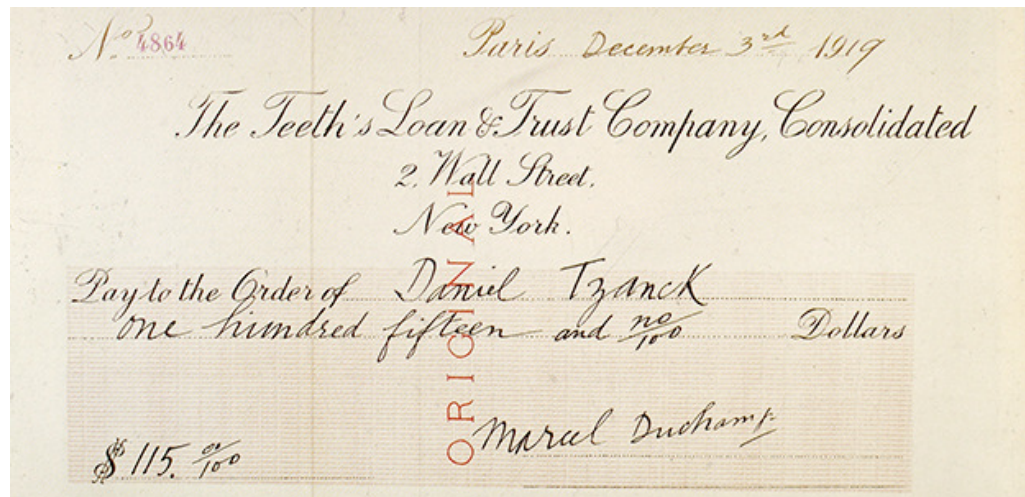 No 4864 Paris December 3rd 1919
The Teeth's Loan & Trust Company, Consolidated
2. Wall Street.
New York.
Pay to the Order of Daniel Tzanck
one hundred fifteen and no/100 Dollars
ORIGINAL
Marcel Duchamp
$ 115. oo/100